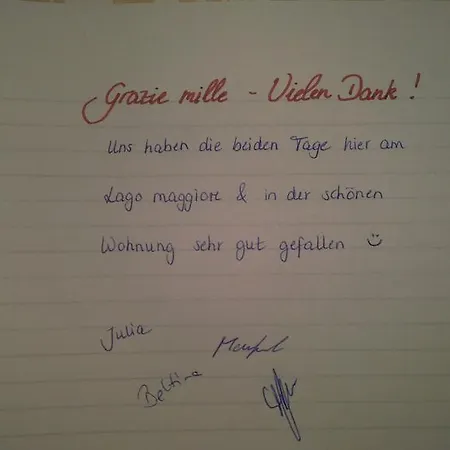 Grazie mille - Vielen Dank !
Uns haben die beiden Tage hier am
Lago maggiore & in der schönen
Wohnung sehr gut gefallen
Julia
Bettina